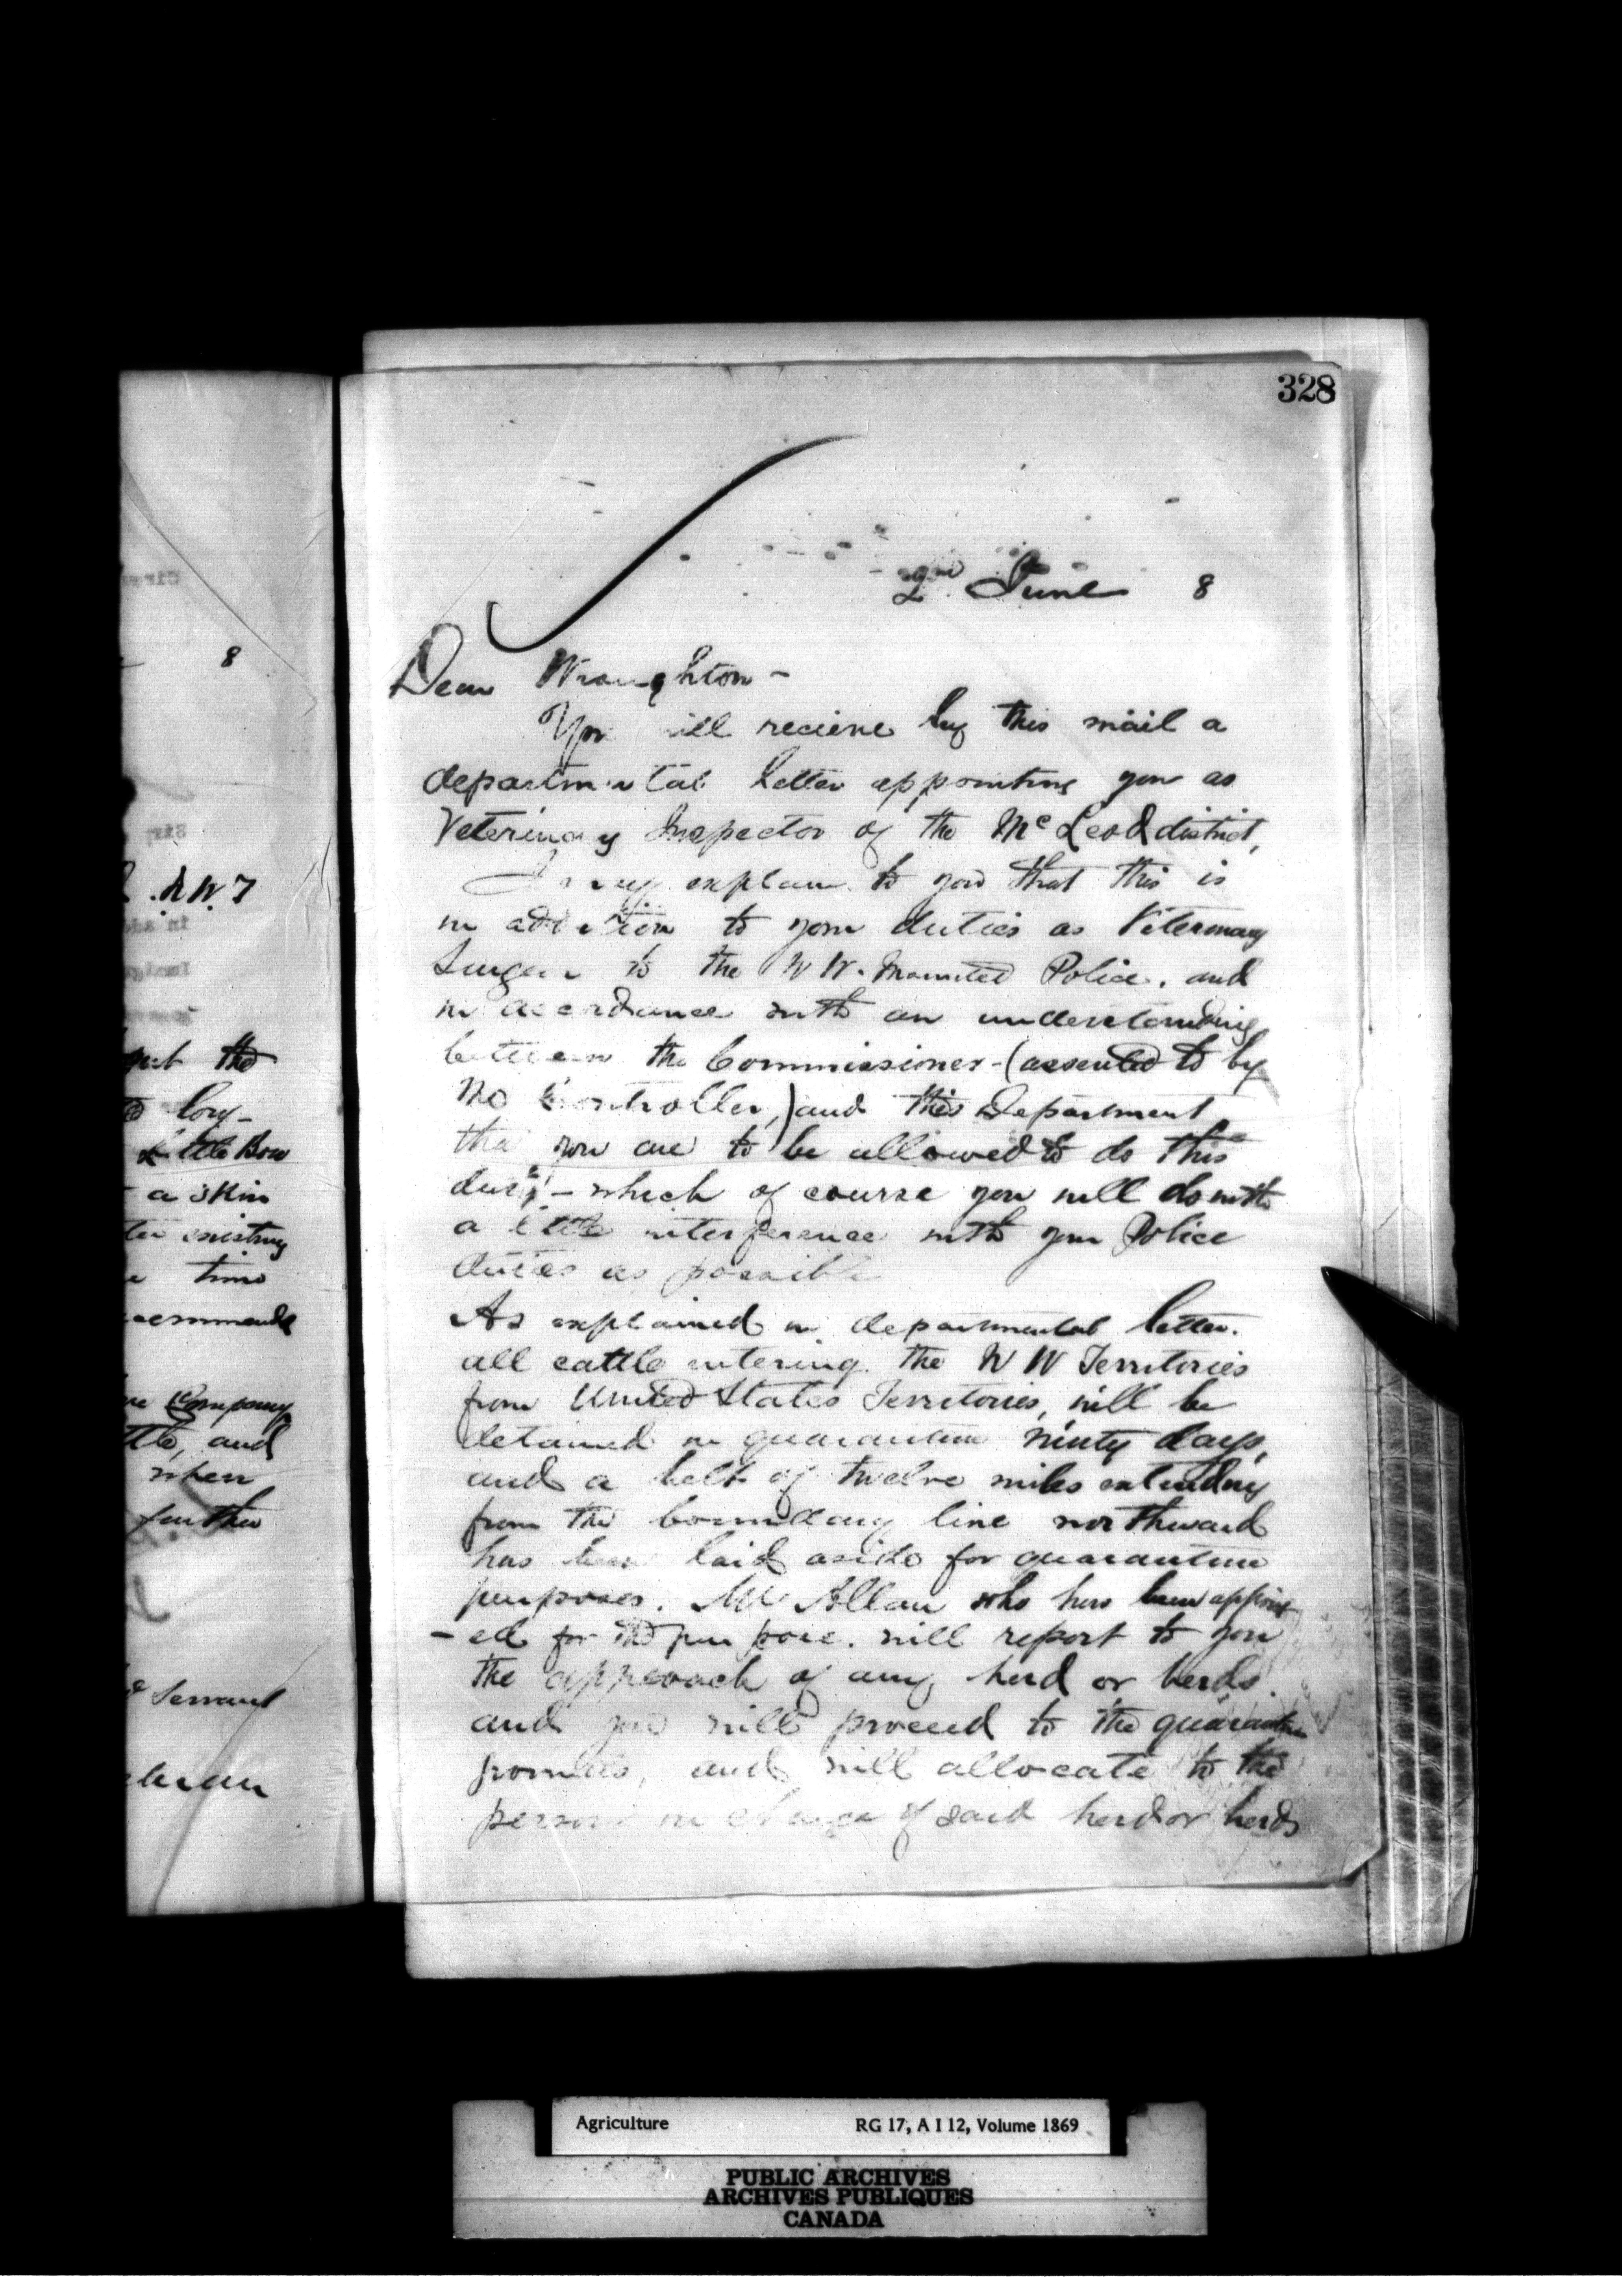 328
2nd June 8
Dear Wroughton -
You will recieve by this mail a
departmental letter appointing you as
Veterinary Inspector of the McLeod district,
I may explain to you that this is
in addition to your duties as Veterinary
Surgeon to the N W. Mounted Police. and
in accordance with an understanding
between the Commissioner - (assented to by
the Controller,) and this Department
that you are to be allowed to do this
duty - which of course you will do with
a little interference with your Police
duties as possible
As explained in departmental letter.
all cattle entering the N W Territories
from United States Territories, will be
detained in quarantine ninety days,
and a belt of twelve miles extending
from the boundary line northward
has been laid aside for quarantine
purposes. Mr Allan who has been appoint
- ed for the purpose. will report to you
the approach of any herd or herds
and you will proceed to the quarantine
grounds, and will allocate to the
person in charge of said herd or herds
8
. N W. T
the
Little Bow
a skin
existing
time
Company
and
when
further
Servant
Agriculture RG 17, A I 12, Volume 1869
PUBLIC ARCHIVES
ARCHIVES PUBLIQUES
CANADA